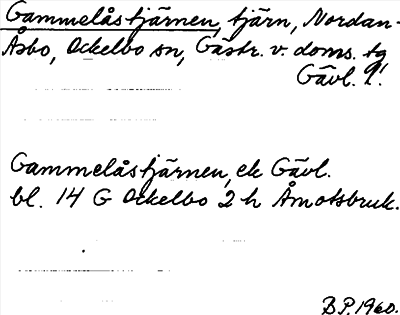 Gammelåstjärnen, tjärn, Nordan-
Åsbo, Ockelbo sn, Gästr. v. doms. tg
Gävl. l.
Gammelåstjärnen, ek Gävl.
bl. 14 G Ockelbo 2 h Åmotsbruk.
B.P. 1960.